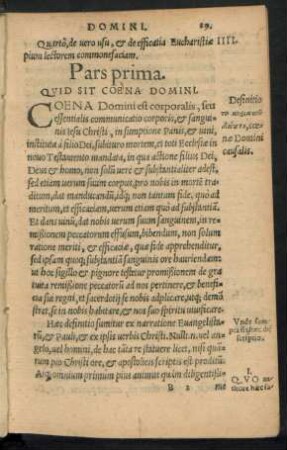 DOMINI.
Quartò, de uero usu, & de efficatia Eucharistiæ
IIII.
pium lectorem commonefaciam.
Pars prima.
QVID SIT COENA DOMINI.
COENA Domini est corporalis, seu
essentialis communicatio corporis, & sangui-
nis Iesu Christi, in sumptione Panis, et uini,
instituta à filio Dei, subituro mortem, et toti Ecclesiæ in
nouo Testamento mandata, in qua actione filius Dei,
Deus & homo, non solũ uerè & substantialiter adest,
sed etiam uerum suum corpus, pro nobis in mortẽ tra-
ditum, dat manducandũ, idq; non tantum fide, quo ad
meritum, et efficaciam, uerum etiam quo ad substantiã.
Et dans uinũ, dat nobis uerum suum sanguinem, in re-
missionem peccatorum effusum, bibendum, non solum
ratione meriti, & efficaciæ, quæ fide apprehenditur,
sed ipsam quoq; substantiã sanguinis ore hauriendam:
ut hoc sigillo & pignore testetur promißionem de gra-
tuita remißione peccatorũ ad nos pertinere, & benefi-
cia sui regni, et sacerdotij se nobis adplicare, utq; demõ
strat, se in nobis habitare, & nos suo spiritu uiuificare.
Hæc definitio sumitur ex narratione Euangelista-
rũ, & Pauli, & ex ipsis uerbis Christi. Nulli.n. uel an-
gelo, uel homini, de hac tãta re statuere licet, nisi quã-
tum pso Christi ore, & apostolicis scriptis est proditũ.
Atq; omnium primum pius animus quàm diligentißi-
B
Definitio
Domini
causalis.
Vnde sum-
pta
I.
QVO